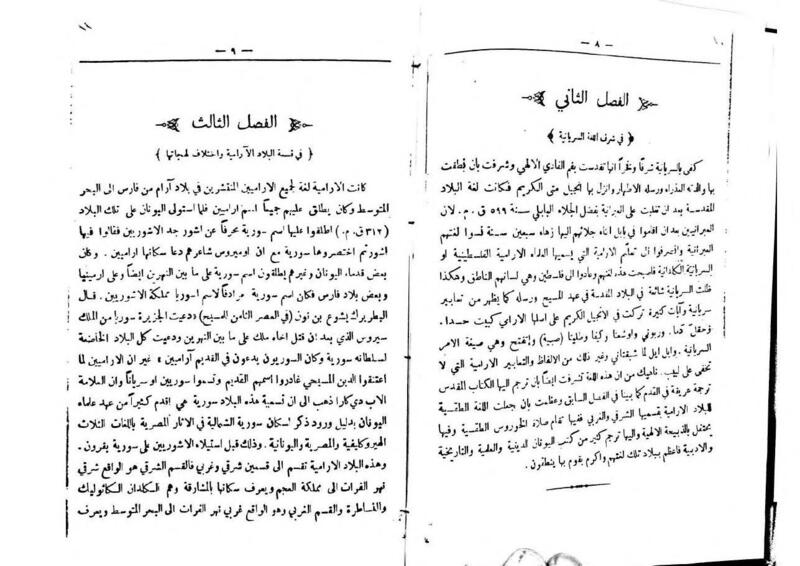 ١٠
— ٨ —
الفصل الثاني
﴿ في شرف اللغة السريانية ﴾
كفى بالسريانية شرفًا وفخرًا انها تقدست بفم الفادي الالهي وشرفت بأن نطقت
بها والدته العذراء ورسله الاطهار وانزل بها انجيل متى الكريم فكانت لغة البلاد
المقدسة بعد ان تغلبت على العبرانية بفضل الجلاء البابلي سنة ٥٩٩ ق . م . لان
العبرانيين بعد ان اقاموا في بابل ابناء جلائهم اليها زهاء سبعين سنة نسوا لغتهم
العبرانية وانصرفوا الى تعلّم الارامية التي يسميها العلماء الارامية الفلسطينية او
السريانية الكلدانية فاصبحت هذه لغتهم وعادوا الى فلسطين وهي لسانهم الناطق وهكذا
ظلت السريانية شائعة في البلاد المقدسة في عهد المسيح ورسله كما يظهر من تعابير
سريانية وآيات كثيرة تركت في الانجيل الكريم على اصلها الارامي كبيت حسدا .
وحقل دما . وربوني واوشعنا وكيفا وطليثا (صبية) وإتفتح وهي صيغة الامر
السريانية . وايل ايل لما شبقتاني وغير ذلك من الالفاظ والتعابير الارامية التي لا
تخفى على لبيب . ناهيك من ان هذه اللغة تشرفت ايضًا بان ترجم اليها الكتاب المقدس
ترجمة عريقة في القدم كما بينا في الفصل السابق وعظمت بان جعلت اللغة الطقسية
للبلاد الارامية بقسميها الشرقي والغربي ففيها تقام صلاة الخوروس الطقسية وفيها
يحتفل بالذبيحة الالهية واليها ترجم كثير من كتب اليونان الدينية والعلمية والتاريخية
والادبية فاعظم ببلاد تلك لغتهم واكرم بقوم بها ينطقون .
١١
— ٩ —
الفصل الثالث
﴿ في قسمة البلاد الآرامية واختلاف لهجاتها ﴾
كانت الارامية لغة لجميع الاراميين المنتشرين في بلاد آرام من فارس الى البحر
المتوسط وكان يطلق عليهم جميعًا اسم اراميين فلما استولى اليونان على تلك البلاد
(٣١٢ ق . م .) اطلقوا عليها اسم سورية محرفًا عن اشور جد الاشوريين فقالوا فيها
اشورثم اختصروها سورية مع ان اوميروس شاعرهم دعا سكانها اراميين . وكان
بعض قدماء اليونان وغيرهم يطلقون اسم سورية على ما بين النهرين ايضًا وعلى ارمينيا
وبعض بلاد فارس فكان اسم سورية مرادفًا لاسم اسوريا مملكة الاشوريين . قال
البطريرك يشوع بن نون (في العصر الثامن للمسيح) « ودعيت الجزيرة سوريا من الملك
سيروس الذي بعد ان قتل اخاه ملك على ما بين النهرين ودعيت كل البلاد الخاضعة
لسلطانه سورية وكان السوريون يدعون في القديم آراميين » غير ان الاراميين لما
اعتنقوا الدين المسيحي غادروا اسمهم القديم وتسموا سوريين او سريانًا وان العلامة
الاب دي كارا ذهب الى ان تسمية هذه البلاد سورية هي اقدم كثيرًا من عهد علماء
اليونان بدليل ورود ذكر اسكان سورية الشمالية في الاثار المصرية باللغات الثلاث
الهيروكليفية والمصرية واليونانية . وذلك قبل استيلاء الاشوريين على سورية بقرون .
وهذه البلاد الارامية تقسم الى قسمين شرقي وغربي فالقسم الشرقي هو الواقع شرقي
نهر الفرات الى مملكة العجم ويعرف سكانها بالمشارقة وهم الكلدان الكاثوليك
والنساطرة والقسم الغربي وهو الواقع غربي نهر الفرات الى البحر المتوسط ويعرف